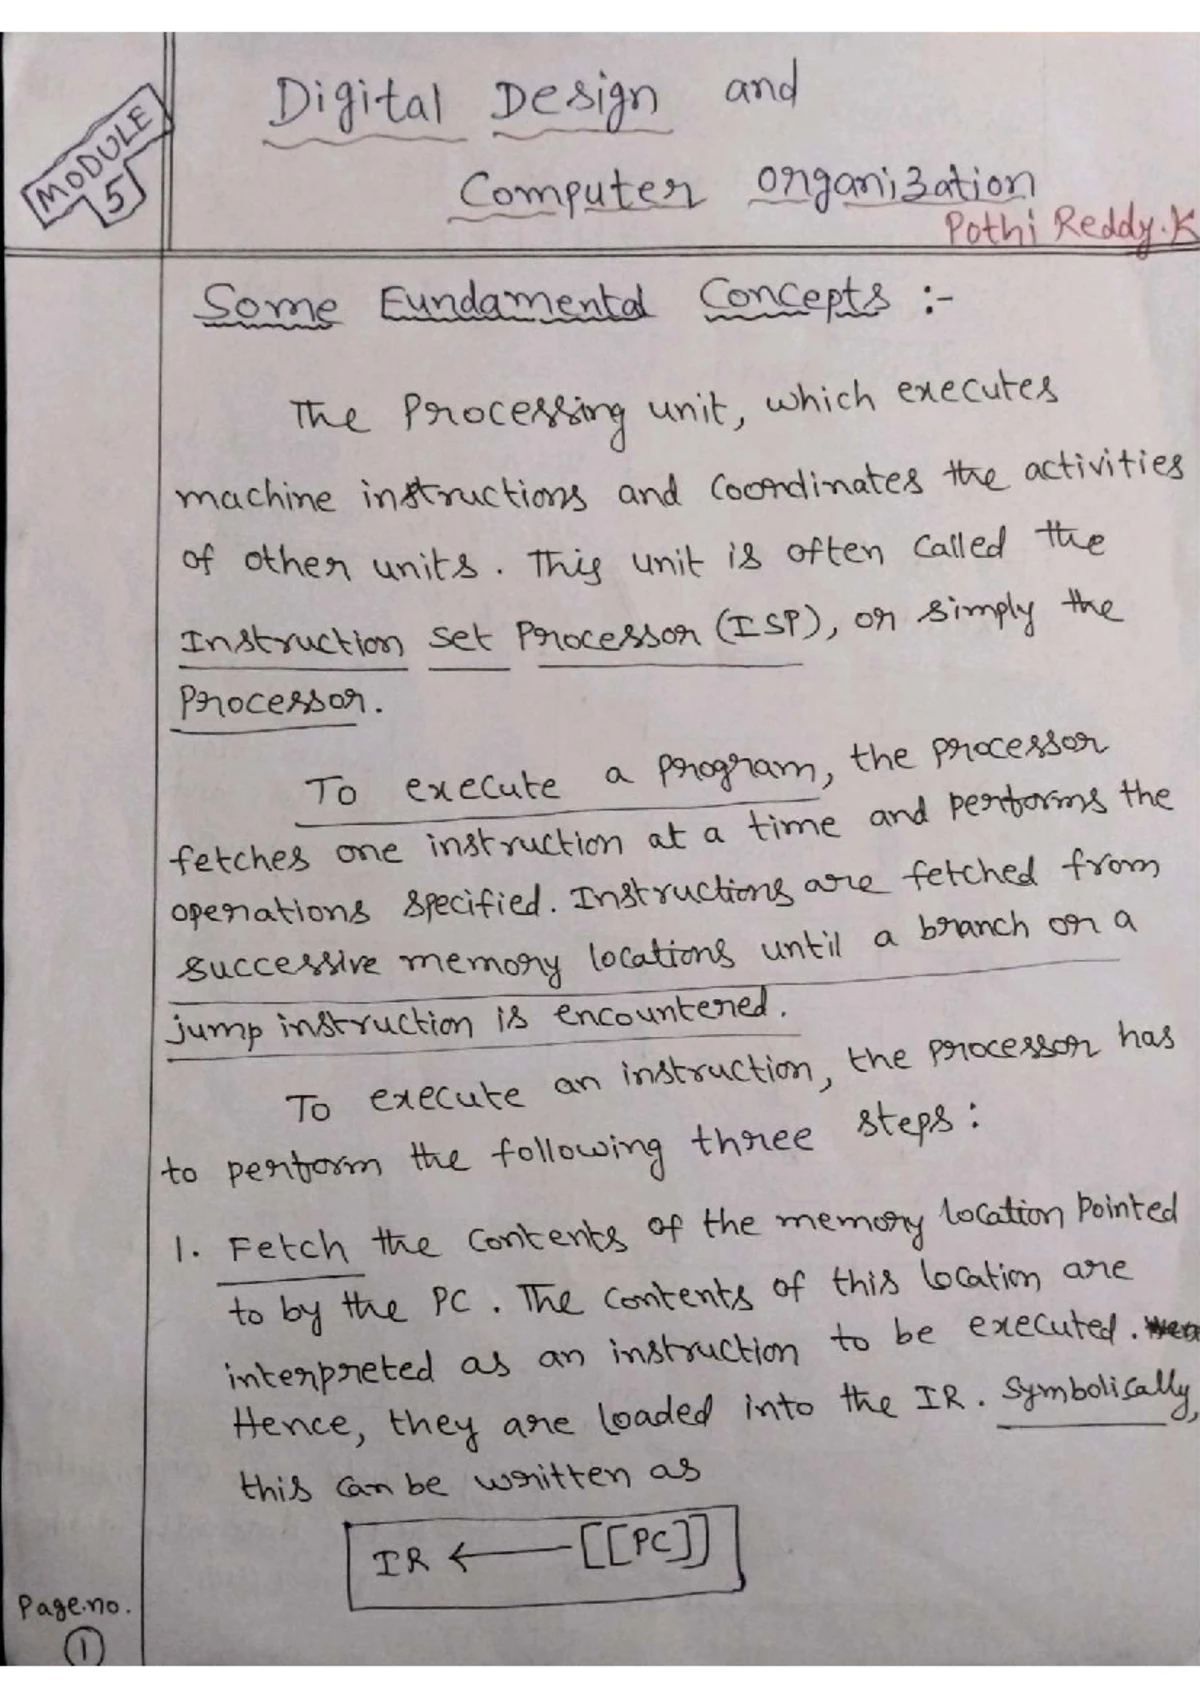 MODULE
5
Digital Design and
Computer organization
Pothi Reddy.K
Some Fundamental Concepts :-
The Processing unit, which executes
machine instructions and coordinates the activities
of other units. This unit is often called the
Instruction set Processor (ISP), or simply the
Processor.
To execute a program, the processor
fetches one instruction at a time and performs the
operations specified. Instructions are fetched from
successive memory locations until a branch or a
jump instruction is encountered.
To execute an instruction, the processor has
to perform the following three steps:
1. Fetch the contents of the memory location pointed
to by the PC. The contents of this location are
interpreted as an instruction to be executed.
Hence, they are loaded into the IR. Symbolically,
this can be written as
IR ← [[PC]]
Page.no.
1